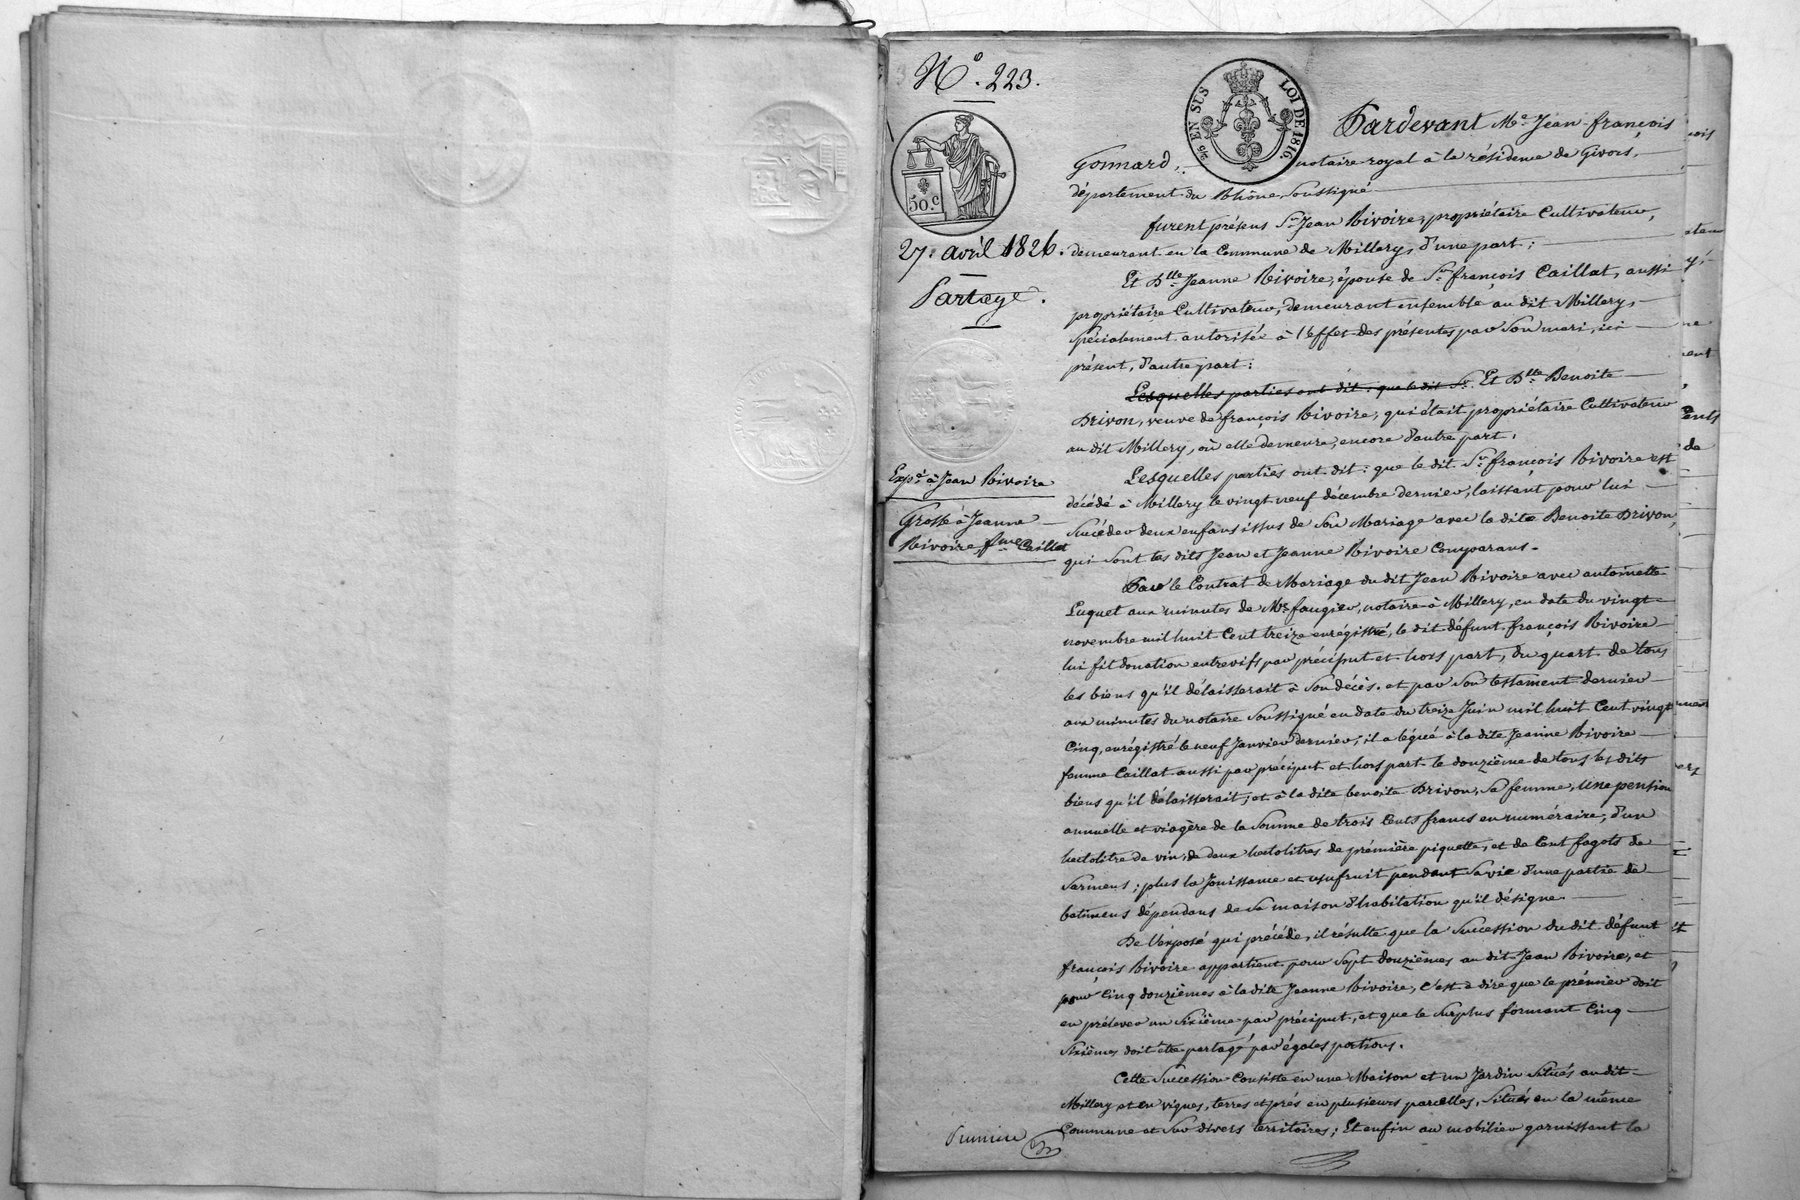 N.º 223.
EN SUS LOI DE 1816
50.c
27. avril 1826.
Partage.
Expé. à Jean Rivoire
Grosse à Jeanne
Rivoire fme. Caillat
Pardevant Me. Jean-françois
Gonnard, notaire royal à la résidence de Givors,
département du Rhône, soussigné
furent présens Sr. Jean Rivoire, propriétaire Cultivateur,
demeurant en la Commune de Millery, d'une part;
Et Dlle. Jeanne Rivoire, épouse de Sr. françois Caillat, aussi
propriétaire Cultivateur, demeurant ensemble au dit Millery,
spécialement autorisée à l'effet des présentes par son mari, ici
présent, d'autre part:
Lesquelles parties ont dit: que le dit Sr. Et Dlle. Benoite
Drivon, veuve de françois Rivoire, qui était propriétaire Cultivateur
au dit Millery, où elle demeure, encore d'autre part.
Lesquelles parties ont dit: que le dit Sr. françois Rivoire est
décédé à Millery le vingt neuf décembre dernier, laissant pour lui
succéder deux enfans issus de son Mariage avec la dite Benoite Drivon,
qui sont les dits Jean et Jeanne Rivoire Comparans.
Par le Contrat de Mariage du dit Jean Rivoire avec antoinette
Luquet aux minutes de Me. faugier, notaire à Millery, en date du vingt
novembre mil huit Cent treize enrégistré, le dit défunt françois Rivoire
lui fit donation entrevifs par préciput et hors part, du quart de tous
les biens qu'il délaisserait à son décès. et par son testament dernier
aux minutes du notaire soussigné en date du treize Juin mil huit Cent vingt
Cinq, enrégistré le neuf Janvier dernier, il a légué à la dite Jeanne Rivoire
femme Caillat aussi par préciput et hors part le douzième de tous les dits
biens qu'il délaisserait; et à la dite benoite Drivon, sa femme, une pension
annuelle et viagère de la somme de trois Cents francs en numéraire, d'un
hectolitre de vin, de deux hectolitres de prémière piquette, et de Cent fagots de
Sarmens; plus la Jouissance et usufruit pendant sa vie d'une partie de
batimens dépendans de sa maison d'habitation qu'il désigne.
De l'exposé qui précéde, il résulte que la succession du dit défunt
françois Rivoire appartient pour Sept douzièmes au dit Jean Rivoire, et
pour Cinq douzièmes à la dite Jeanne Rivoire, C'est à dire que le prémier doit
en prélever un Sixième par préciput, et que le surplus formant Cinq
Sixièmes doit être partagé par égales portions.
Cette succession Consiste en une Maison et un Jardin situés au dit
Millery et en vignes, terres et prés en plusieurs parcelles, situés en la même
Commune et sur divers territoires; Et enfin au mobilier garnissant la